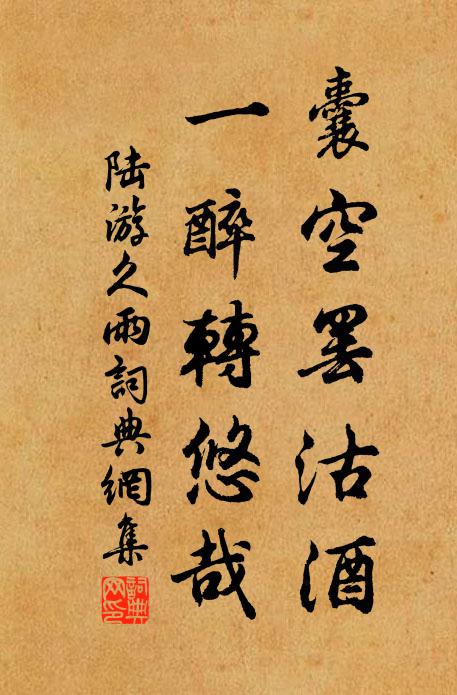 囊空罢沽酒
一醉轉悠哉
陆游久雨詞典網集
詞典
网印